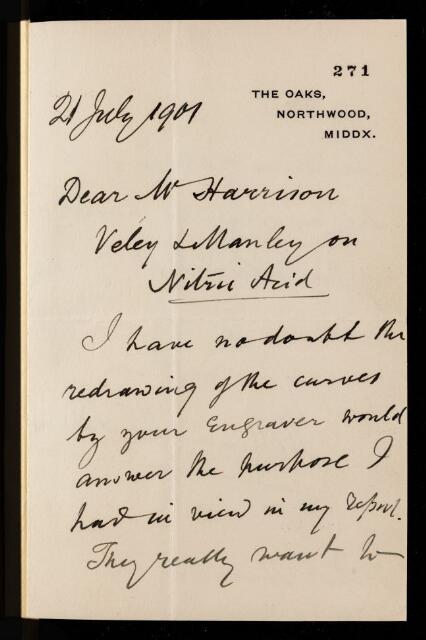 271
THE OAKS,
NORTHWOOD,
MIDDX.
21 July 1901
Dear Mr Harrison
Veley & Manley on
Nitric Acid
I have no doubt the
redrawing of the curves
by your Engraver would
answer the purpose I
had in view in my report.
They really want to